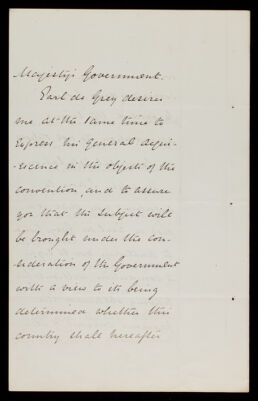 Majesty's Government.
Earl de Grey desires
me at the same time to
express his general acqui-
-escence in the objects of the
convention, and to assure
you that the subject will
be brought under the con-
sideration of the Government
with a view to its being
determined whether this
country shall hereafter